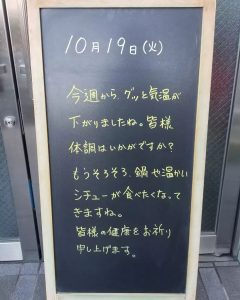 10月19日(火)
今週から、グッと気温が
下がりましたね。皆様
体調はいかがですか?
もうそろそろ、鍋や温かい
シチューが食べたくなって
きますね。
皆様の健康をお祈り
申し上げます。